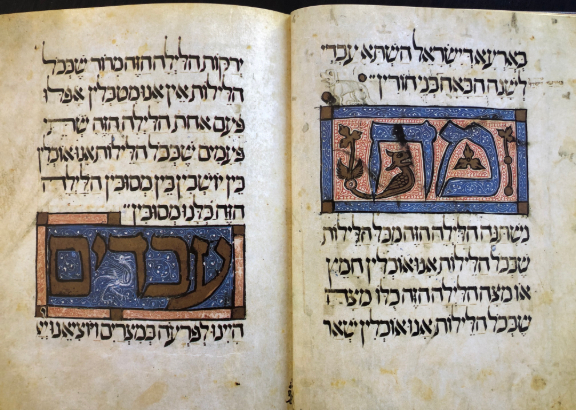 בארעא דישראל השתא עבדי
לשנה הבאה בני חורין׃
מה
נשתנה הלילה הזה מכל הלילות
שבכל הלילות אנו אוכלין חמץ
או מצה הלילה הזה כלו מצה
שבכל הלילות אנו אוכלין שאר
ירקות הלילה הזה מרור שבכל
הלילות אין אנו מטבלין אפלו
פעם אחת הלילה הזה שתי
פעמים שבכל הלילות אנו אוכלין
בין יושבין בין מסובין הלילה
הזה כלנו מסובין׃
עבדים
היינו לפרעה במצרים ויוציאנו